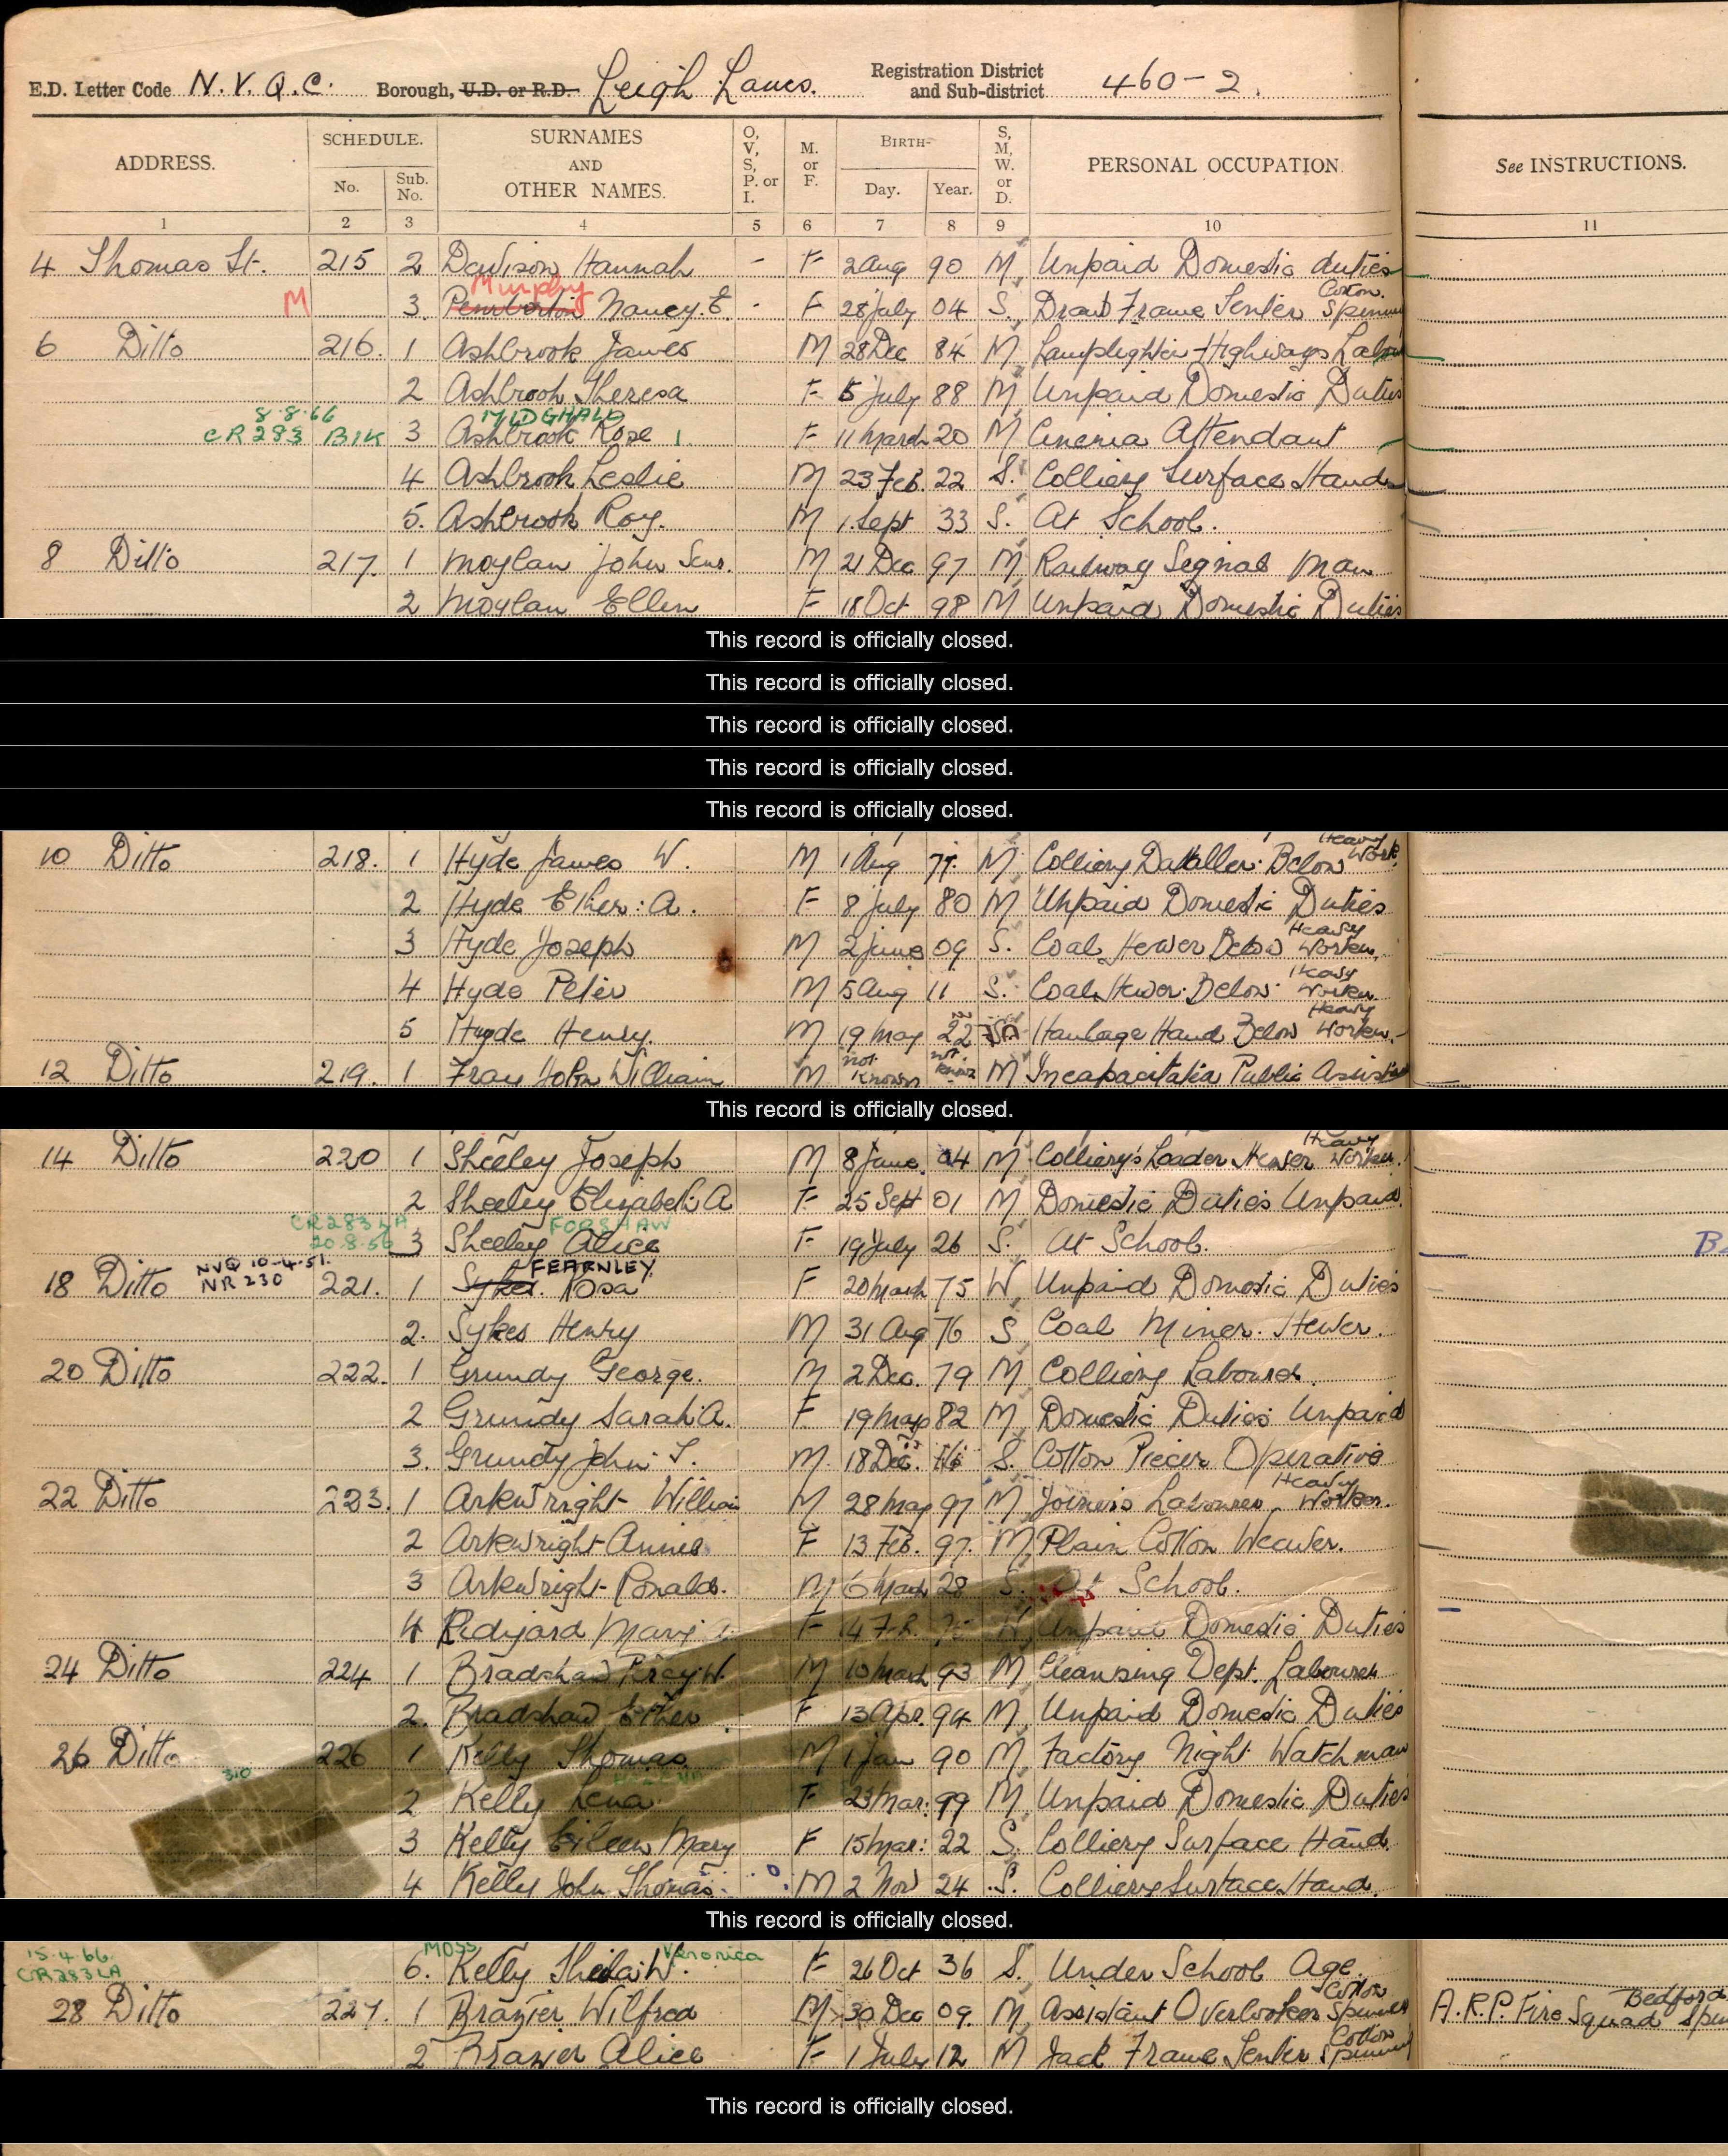 E.D. Letter Code N.V.Q.C. Borough, U.D. or R.D. Leigh Lancs. Registration District and Sub-district 460-2.
ADDRESS. SCHEDULE. No. Sub. No. SURNAMES AND OTHER NAMES. O, V, S, P. or I. M. or F. BIRTH- Day. Year. S, M, W. or D. PERSONAL OCCUPATION. See INSTRUCTIONS.
1 2 3 4 5 6 7 8 9 10 11
4 Thomas St. 215 2 Davison Hannah - F 2 Aug 90 M Unpaid Domestic duties
Murphy
M 3. Pemberton Nancy. E - F 28 July 04 S. Draw Frame Tenter Cotton Spinning
6 Ditto 216. 1 Ashbrook James M 28 Dec 84 M Lamplighter Highways Labour
2 Ashbrook Theresa F 5 July 88 M Unpaid Domestic Duties
8.8.66 MIDGHALL
CR 283 B1K 3 Ashbrook Rose F 11 March 20 M Cinema Attendant
4 Ashbrook Leslie M 23 Feb. 22 S. Colliery Surface Hand
5. Ashbrook Roy. M 1 Sept 33 S. At School.
8 Ditto 217. 1 Moylan John Senr. M 21 Dec 97 M Railway Signal Man
2 Moylan Ellen F 18 Oct 98 M Unpaid Domestic Duties
This record is officially closed.
This record is officially closed.
This record is officially closed.
This record is officially closed.
This record is officially closed.
10 Ditto 218. 1 Hyde James W. M 1 Aug 77. M Colliery Dataller. Below Heavy Work.
2 Hyde Esther: A. F 8 July 80 M Unpaid Domestic Duties
3 Hyde Joseph M 2 June 09 S. Coal Hewer Below Heavy Worker.
4 Hyde Peter M 5 Aug 11 S. Coal Hewer. Below. Heavy Worker.
5 Hyde Henry. M 19 May 22 Haulage Hand Below Heavy Worker.
12 Ditto 219. 1 Fray John William M not known not known M Incapacitated Public Assist
This record is officially closed.
14 Ditto 220 1 Sheeley Joseph M 8 June. 04 M. Colliery's Loader Hewer Heavy Worker.
2 Sheeley Elizabeth A F 25 Sept 01 M Domestic Duties Unpaid.
CR 283 LA FORSHAW
20.8.56 3 Sheeley Alice F 19 July 26 S. At School.
NVQ 10-4-51. FEARNLEY
18 Ditto NR 230 221. 1 Sykes. Rosa F 20 March 75 W. Unpaid Domestic Duties
2. Sykes Henry M 31 Aug 76 S Coal Miner. Hewer.
20 Ditto 222. 1 Grundy George. M 2 Dec. 79 M Colliery Labourer.
2 Grundy Sarah A. F 19 May 82 M Domestic Duties Unpaid
3. Grundy John T. M. 18 Dec. 16 S. Cotton Piecer Operative
22 Ditto 223. 1 Arkwright William M 28 May 97 M Joiners Labourer. Heavy Worker.
2 Arkwright Annie F 13 Feb. 97. M Plain Cotton Weaver.
3 Arkwright Ronald. M 6 March 28 S. At School.
4 Redyard Mary F 4 Feb. Unpaid Domestic Duties
24 Ditto 224 1 Bradshaw Percy W. M 10 March 93 M Cleansing Dept. Labourer
2. Bradshaw Esther F 13 Apr. 94 M. Unpaid Domestic Duties
26 Ditto 226 1 Kelly Thomas. M 1 Jan 90 M. Factory Night Watchman
310
2 Kelly Lena F 23 Mar: 99 M Unpaid Domestic Duties
3 Kelly Eileen Mary F 15 Mar: 22 S. Colliery Surface Hand.
4 Kelly John Thomas. M 2 Nov 24 S. Colliery Surface Hand.
This record is officially closed.
15.4.66 MOSS Veronica
CR 283 LA 6. Kelly Sheila W. F 26 Oct 36 S. Under School Age.
28 Ditto 227. 1 Brazier Wilfred M 30 Dec 09. M Assistant Overlooker Cotton Spinner A.R.P. Fire Squad Bedford
2 Brazier Alice F 1 July 12 M Jack Frame Tenter Cotton Spinning
This record is officially closed.